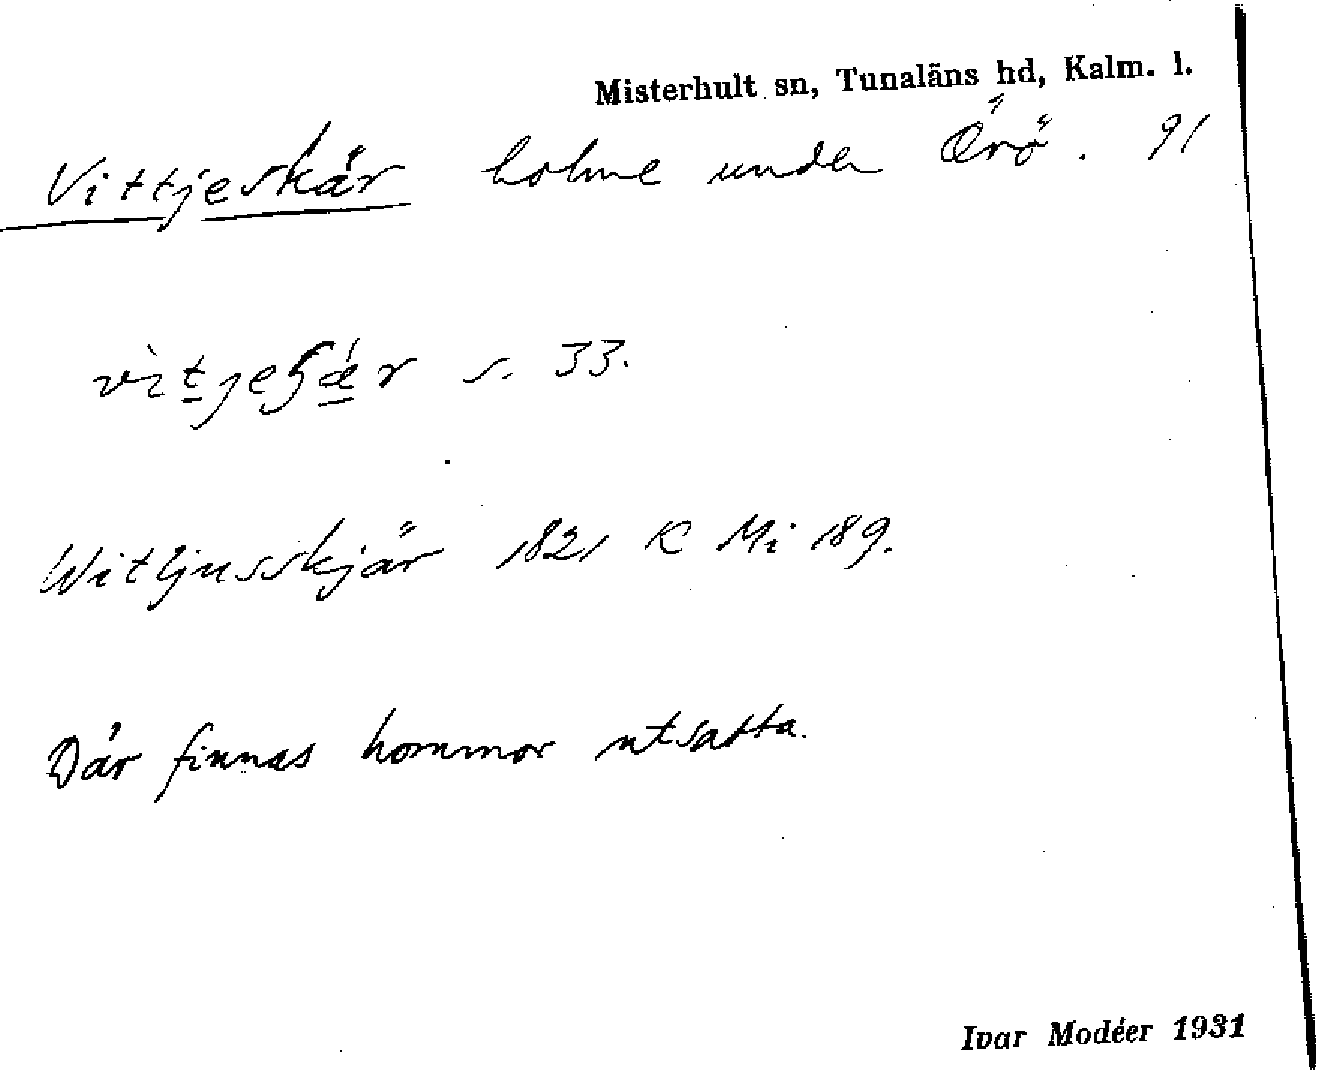 Misterhult sn, Tunaläns hd, Kalm. l.
Vittjeskär holme under Örö. 91
s. 33.
Witljusskjär 1821 K Mi 189.
Där finnas hommor utsatta.
Ivar Modéer 1931